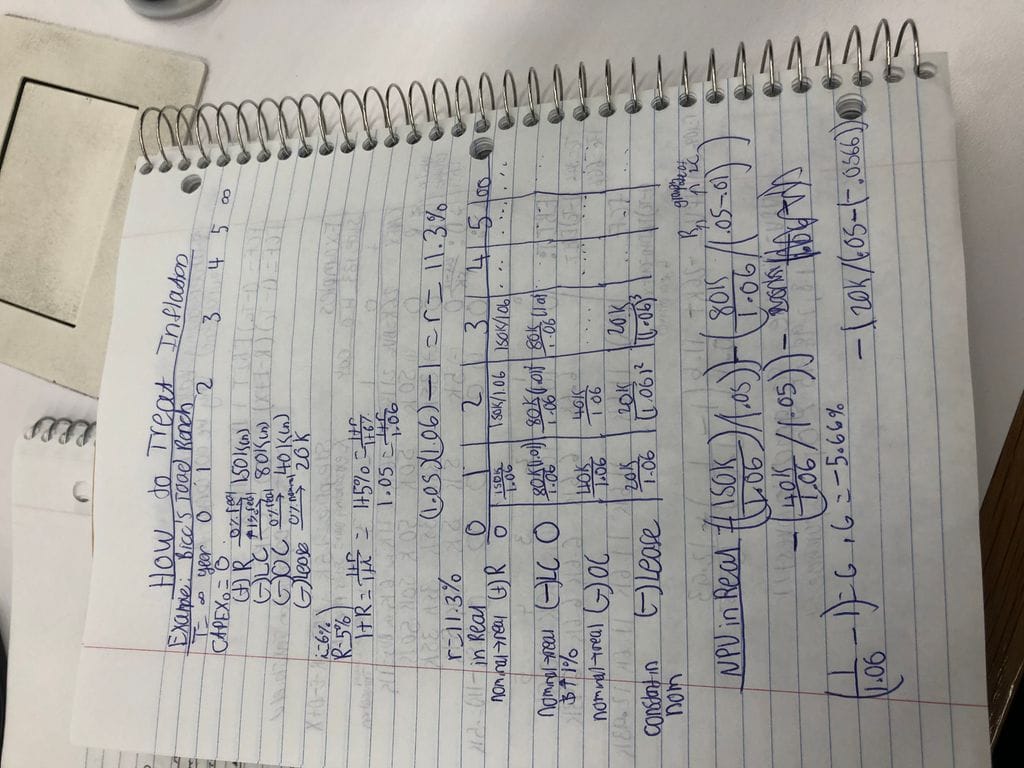 How to Treat Inflation
Example: Bicc's Taco Ranch
T = ∞ year 0 1 2 3 4 5 ∞
CAPEX₀ = 0
(+) R 0% real → 150K(n)
(-) LC ↑1% real → 80K(n)
(-) OC 0% real → 40K(n)
(-) lease 0% nominal → 20K
i=6%
R=5%
1+R = 1+r/1+i = 1+5% = 1+r/1+6%
1.05 = 1+r/1.06
(1.05)(1.06) - 1 = r = 11.3%
r = 11.3%
in Real 0 1 2 3 4 5 ∞
nominal→real (+) R 0 150K/1.06 150K/1.06 150K/1.06 ... ... ...
nominal→real (-) LC 0 80K(1.01)/1.06 80K/1.06(1.01)² 80K/1.06(1.01)³ ... ... ...
& ↑ 1%
nominal→real (-) OC 40K/1.06 40K/1.06 .... ... ... ...
constant in (-) lease 20K/1.06 20K/(1.06)² 20K/(1.06)³
nom
NPV in Real = ((150K/1.06)/1.05) - (80K/1.06/(.05-.01))
R growth rate of LC
- (40K/1.06/(.05)) -
(1/1.06 - 1) = G, G = -5.666% - (20K/(.05-(-.0566))